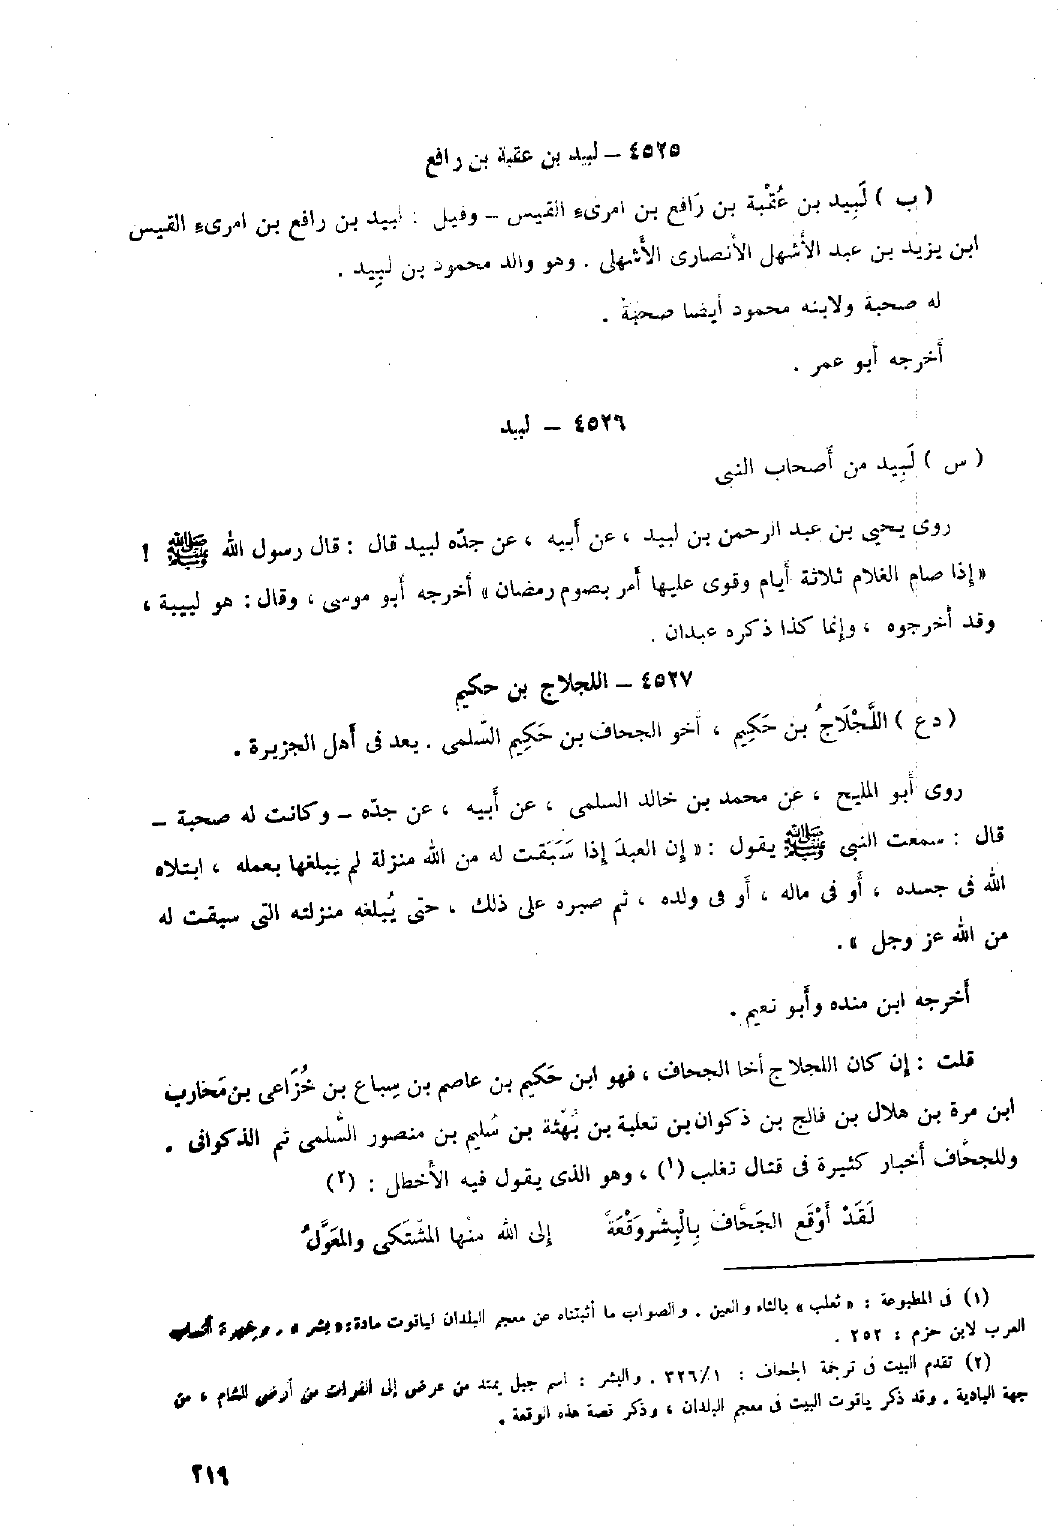 ٤٥٢٥ – لبيد بن عقبة بن رافع
( ب ) لَبِيد بن عُقْبة بن رَافع بن امرىء القيس – وقيل : لبيد بن رافع بن امرىء القيس
ابن يزيد بن عبد الأشهل الأنصارى الأشهلى . وهو والد محمود بن لبِيد .
له صحبة ولابنه محمود أيضا صحبة .
أخرجه أبو عمر .
٤٥٢٦ – لبيد
( س ) لَبِيد من أصحاب النبى
روى يحيى بن عبد الرحمن بن لبيد ، عن أبيه ، عن جدّه لبيد قال : قال رسول الله ﷺ !
« إذا صام الغلام ثلاثة أيام وقوى عليها أمر بصوم رمضان » أخرجه أبو موسى ، وقال : هو لبيبة ،
وقد أخرجوه ، وإنما كذا ذكره عبدان .
٤٥٢٧ – اللجلاج بن حكيم
( دع ) اللَّجْلَاجُ بن حَكِيم ، أخو الجحاف بن حَكِيم السّلمى . يعد فى أهل الجزيرة .
روى أبو المليح ، عن محمد بن خالد السلمى ، عن أبيه ، عن جدّه – وكانت له صحبة –
قال : سمعت النبى ﷺ يقول : « إن العبدَ إذا سَبَقت له من الله منزلة لم يبلغها بعمله ، ابتلاه
الله فى جسده ، أو فى ماله ، أو فى ولده ، ثم صبره على ذلك ، حتى يُبلغه منزلته التى سبقت له
من الله عز وجل » .
أخرجه ابن منده وأبو نعيم .
قلت : إن كان اللجلاج أخا الجحاف ، فهو ابن حَكيم بن عاصم بن سِباع بن خُزَاعى بن مَحَارب
ابن مرة بن هلال بن فالج بن ذكوان بن ثعلبة بن بُهْثة بن سُليم بن منصور السُّلمى ثم الذكوانى .
وللجحَّاف أخبار كثيرة فى قتال تغلب (١) ، وهو الذى يقول فيه الأخطل : (٢)
لَقَدْ أَوْقَع الجَحَّاف بِالْبِشْرِ وَقْعَةً إلى الله منْها المُشْتَكى والمُعَوَّلُ
(١) فى المطبوعة : « ثعلب » بالثاء والعين . والصواب ما أثبتناه عن معجم البلدان لياقوت مادة : « بشر » . وجمهرة أنساب
العرب لابن حزم : ٢٥٢ .
(٢) تقدم البيت فى ترجمة الجحاف : ٣٢٦/١ . والبشر : اسم جبل يمتد من عرض إلى الفرات من أرض الشام ، من
جهة البادية . وقد ذكر ياقوت البيت فى معجم البلدان ، وذكر قصة هذه الوقعة .
٢١٩